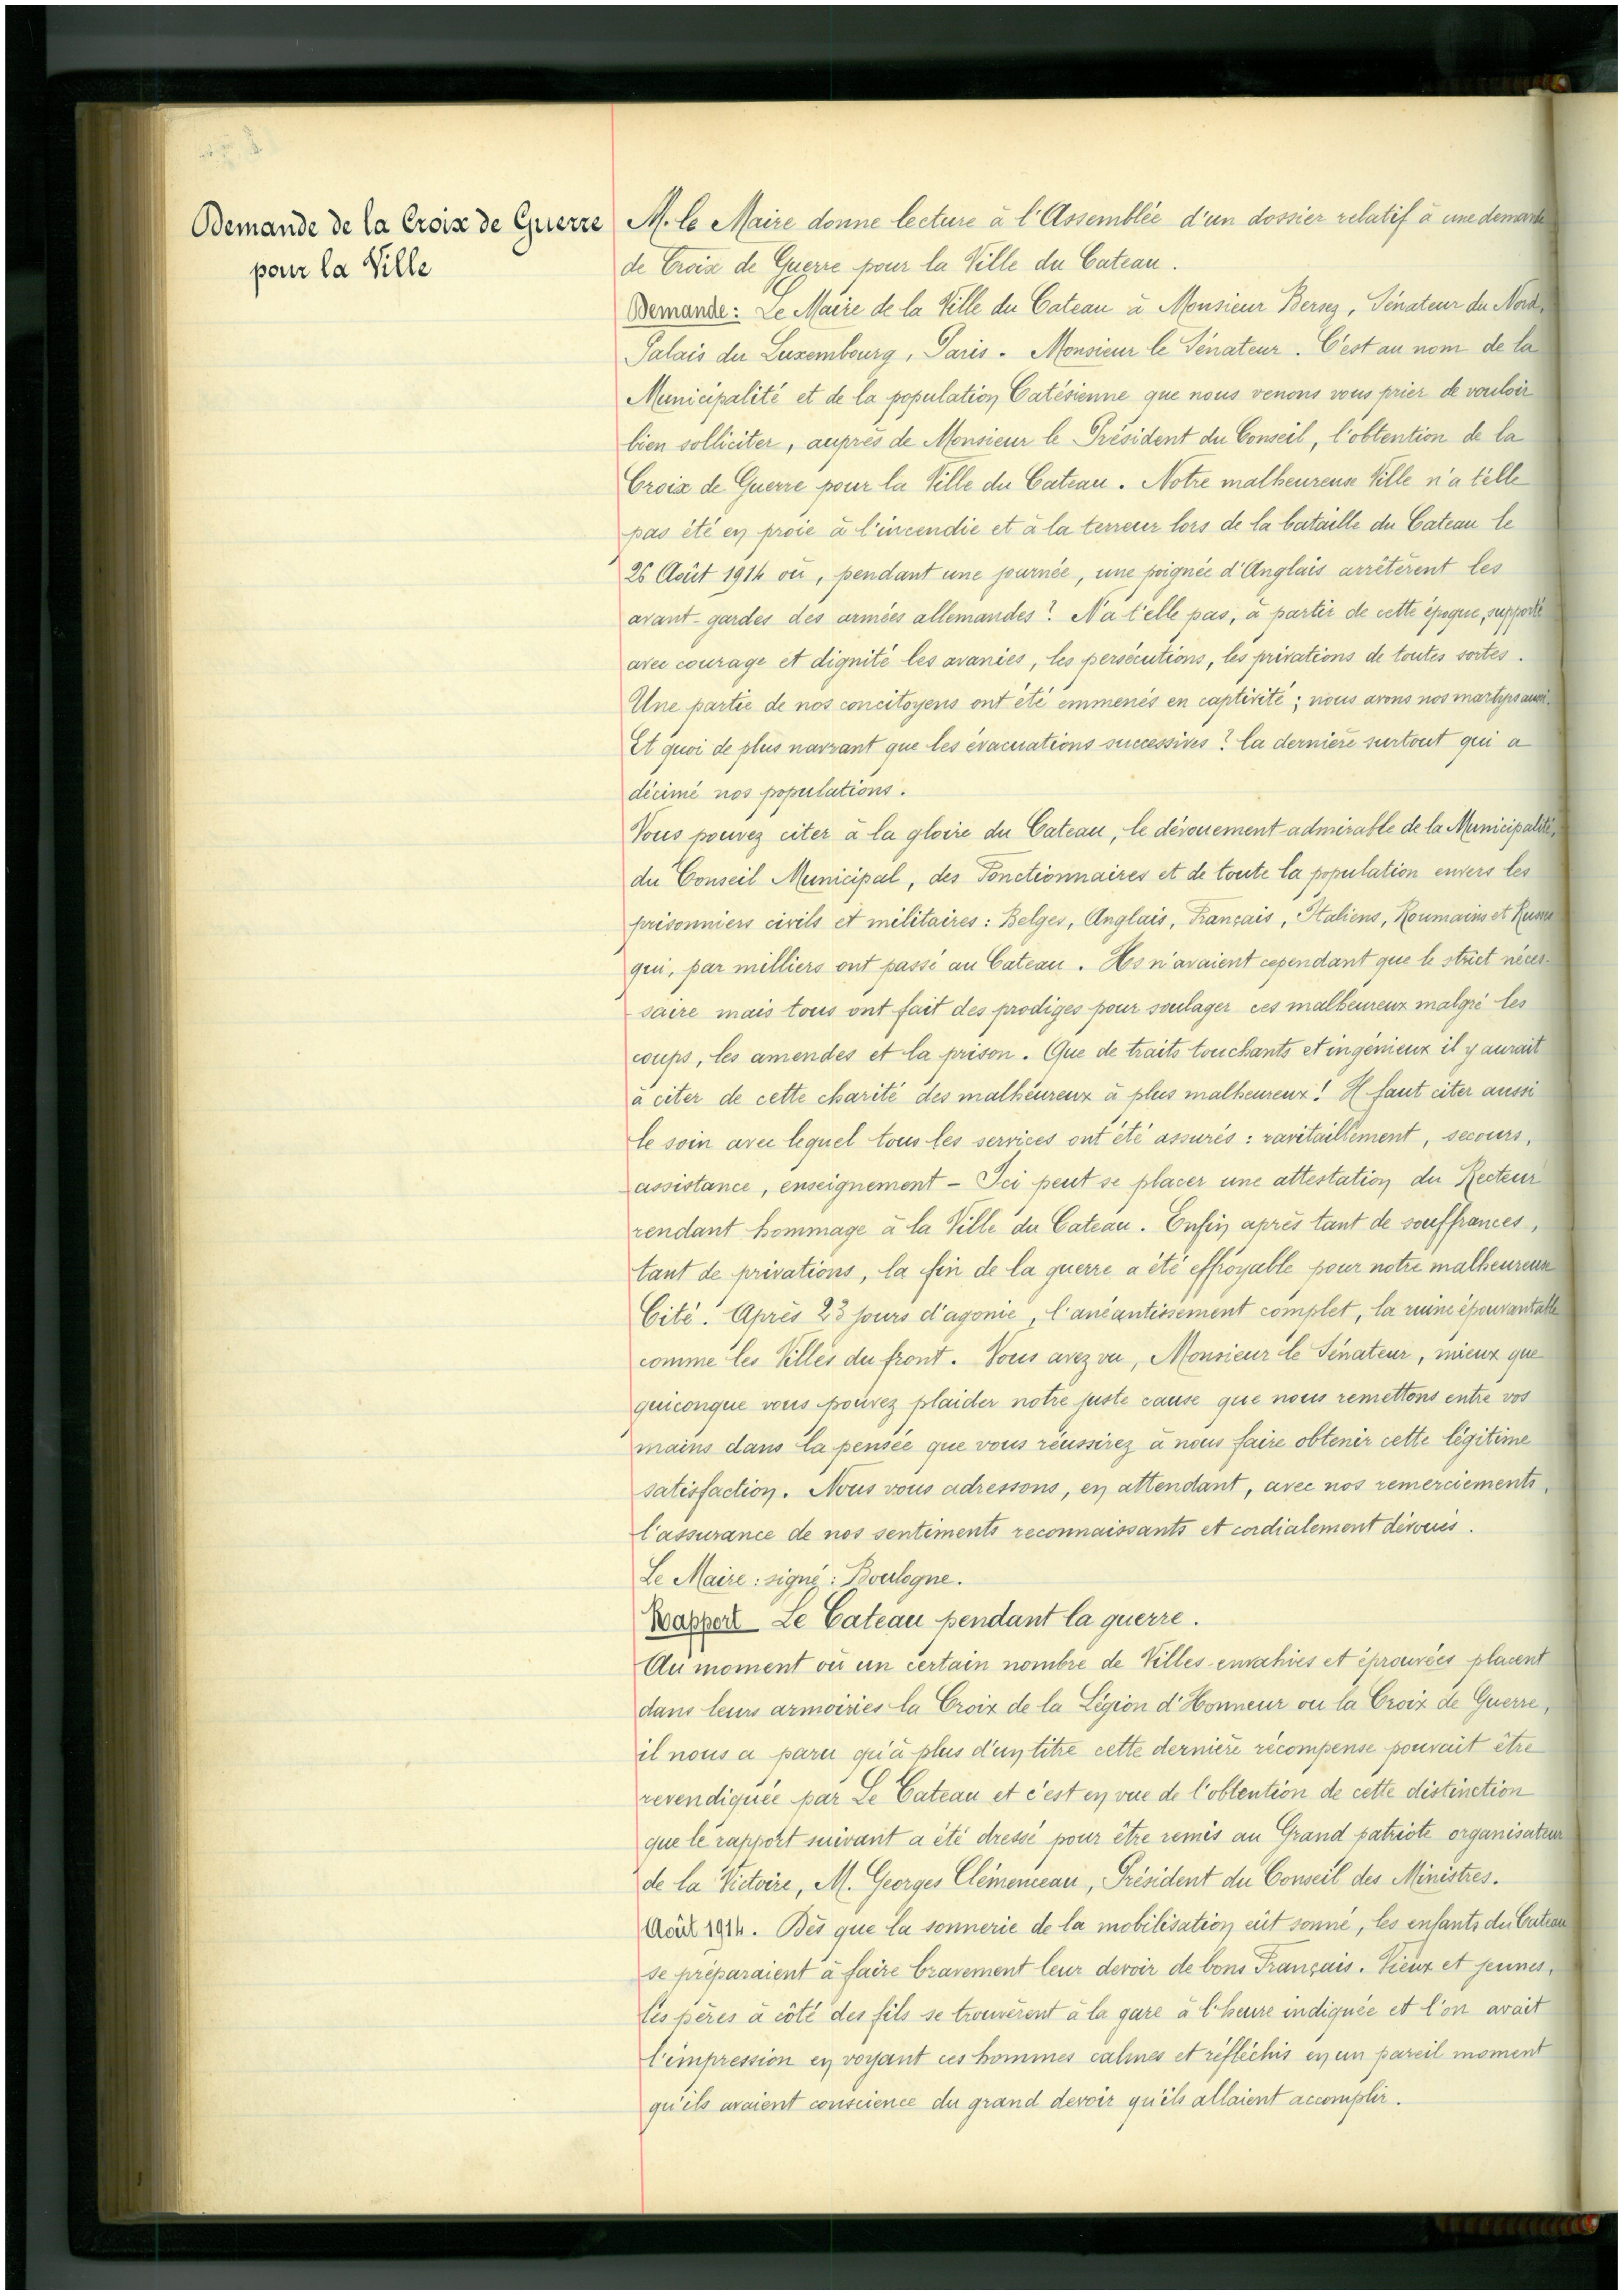 Demande de la Croix de Guerre
pour la Ville
M. le Maire donne lecture à l'Assemblée d'un dossier relatif à une demande
de Croix de Guerre pour la Ville du Cateau.
Demande: Le Maire de la Ville du Cateau à Monsieur Bersez, Sénateur du Nord,
Palais du Luxembourg, Paris. Monsieur le Sénateur. C'est au nom de la
Municipalité et de la population Catésienne que nous venons vous prier de vouloir
bien solliciter, auprès de Monsieur le Président du Conseil, l'obtention de la
Croix de Guerre pour la Ville du Cateau. Notre malheureuse Ville n'a t'elle
pas été en proie à l'incendie et à la terreur lors de la bataille du Cateau le
26 Août 1914 où, pendant une journée, une poignée d'Anglais arrêtèrent les
avant-gardes des armées allemandes? N'a t'elle pas, à partir de cette époque, supporté
avec courage et dignité les avanies, les persécutions, les privations de toutes sortes.
Une partie de nos concitoyens ont été emmenés en captivité; nous avons nos martyrs aussi.
Et quoi de plus navrant que les évacuations successives? la dernière surtout qui a
décimé nos populations.
Vous pouvez citer à la gloire du Cateau, le dévouement admirable de la Municipalité,
du Conseil Municipal, des Fonctionnaires et de toute la population envers les
prisonniers civils et militaires: Belges, Anglais, Français, Italiens, Roumains et Russes
qui, par milliers ont passé au Cateau. Ils n'avaient cependant que le strict néces-
saire mais tous ont fait des prodiges pour soulager ces malheureux malgré les
coups, les amendes et la prison. Que de traits touchants et ingénieux il y aurait
à citer de cette charité des malheureux à plus malheureux! Il faut citer aussi
le soin avec lequel tous les services ont été assurés: ravitaillement, secours,
assistance, enseignement - Ici peut se placer une attestation du Recteur
rendant hommage à la Ville du Cateau. Enfin après tant de souffrances,
tant de privations, la fin de la guerre a été effroyable pour notre malheureuse
Cité. Après 23 jours d'agonie, l'anéantissement complet, la ruine épouvantable
comme les Villes du front. Vous avez vu, Monsieur le Sénateur, mieux que
quiconque vous pouvez plaider notre juste cause que nous remettons entre vos
mains dans la pensée que vous réussirez à nous faire obtenir cette légitime
satisfaction. Nous vous adressons, en attendant, avec nos remerciements,
l'assurance de nos sentiments reconnaissants et cordialement dévoués.
Le Maire: signé: Boulogne.
Rapport Le Cateau pendant la guerre.
Au moment où un certain nombre de Villes envahies et éprouvées placent
dans leurs armoiries la Croix de la Légion d'Honneur ou la Croix de Guerre,
il nous a paru qu'à plus d'un titre cette dernière récompense pouvait être
revendiquée par Le Cateau et c'est en vue de l'obtention de cette distinction
que le rapport suivant a été dressé pour être remis au Grand patriote organisateur
de la Victoire, M. Georges Clémenceau, Président du Conseil des Ministres.
Août 1914. Dès que la sonnerie de la mobilisation eût sonné, les enfants du Cateau
se préparaient à faire bravement leur devoir de bons Français. Vieux et jeunes,
les pères à côté des fils se trouvèrent à la gare à l'heure indiquée et l'on avait
l'impression en voyant ces hommes calmes et réfléchis en un pareil moment
qu'ils avaient conscience du grand devoir qu'ils allaient accomplir.